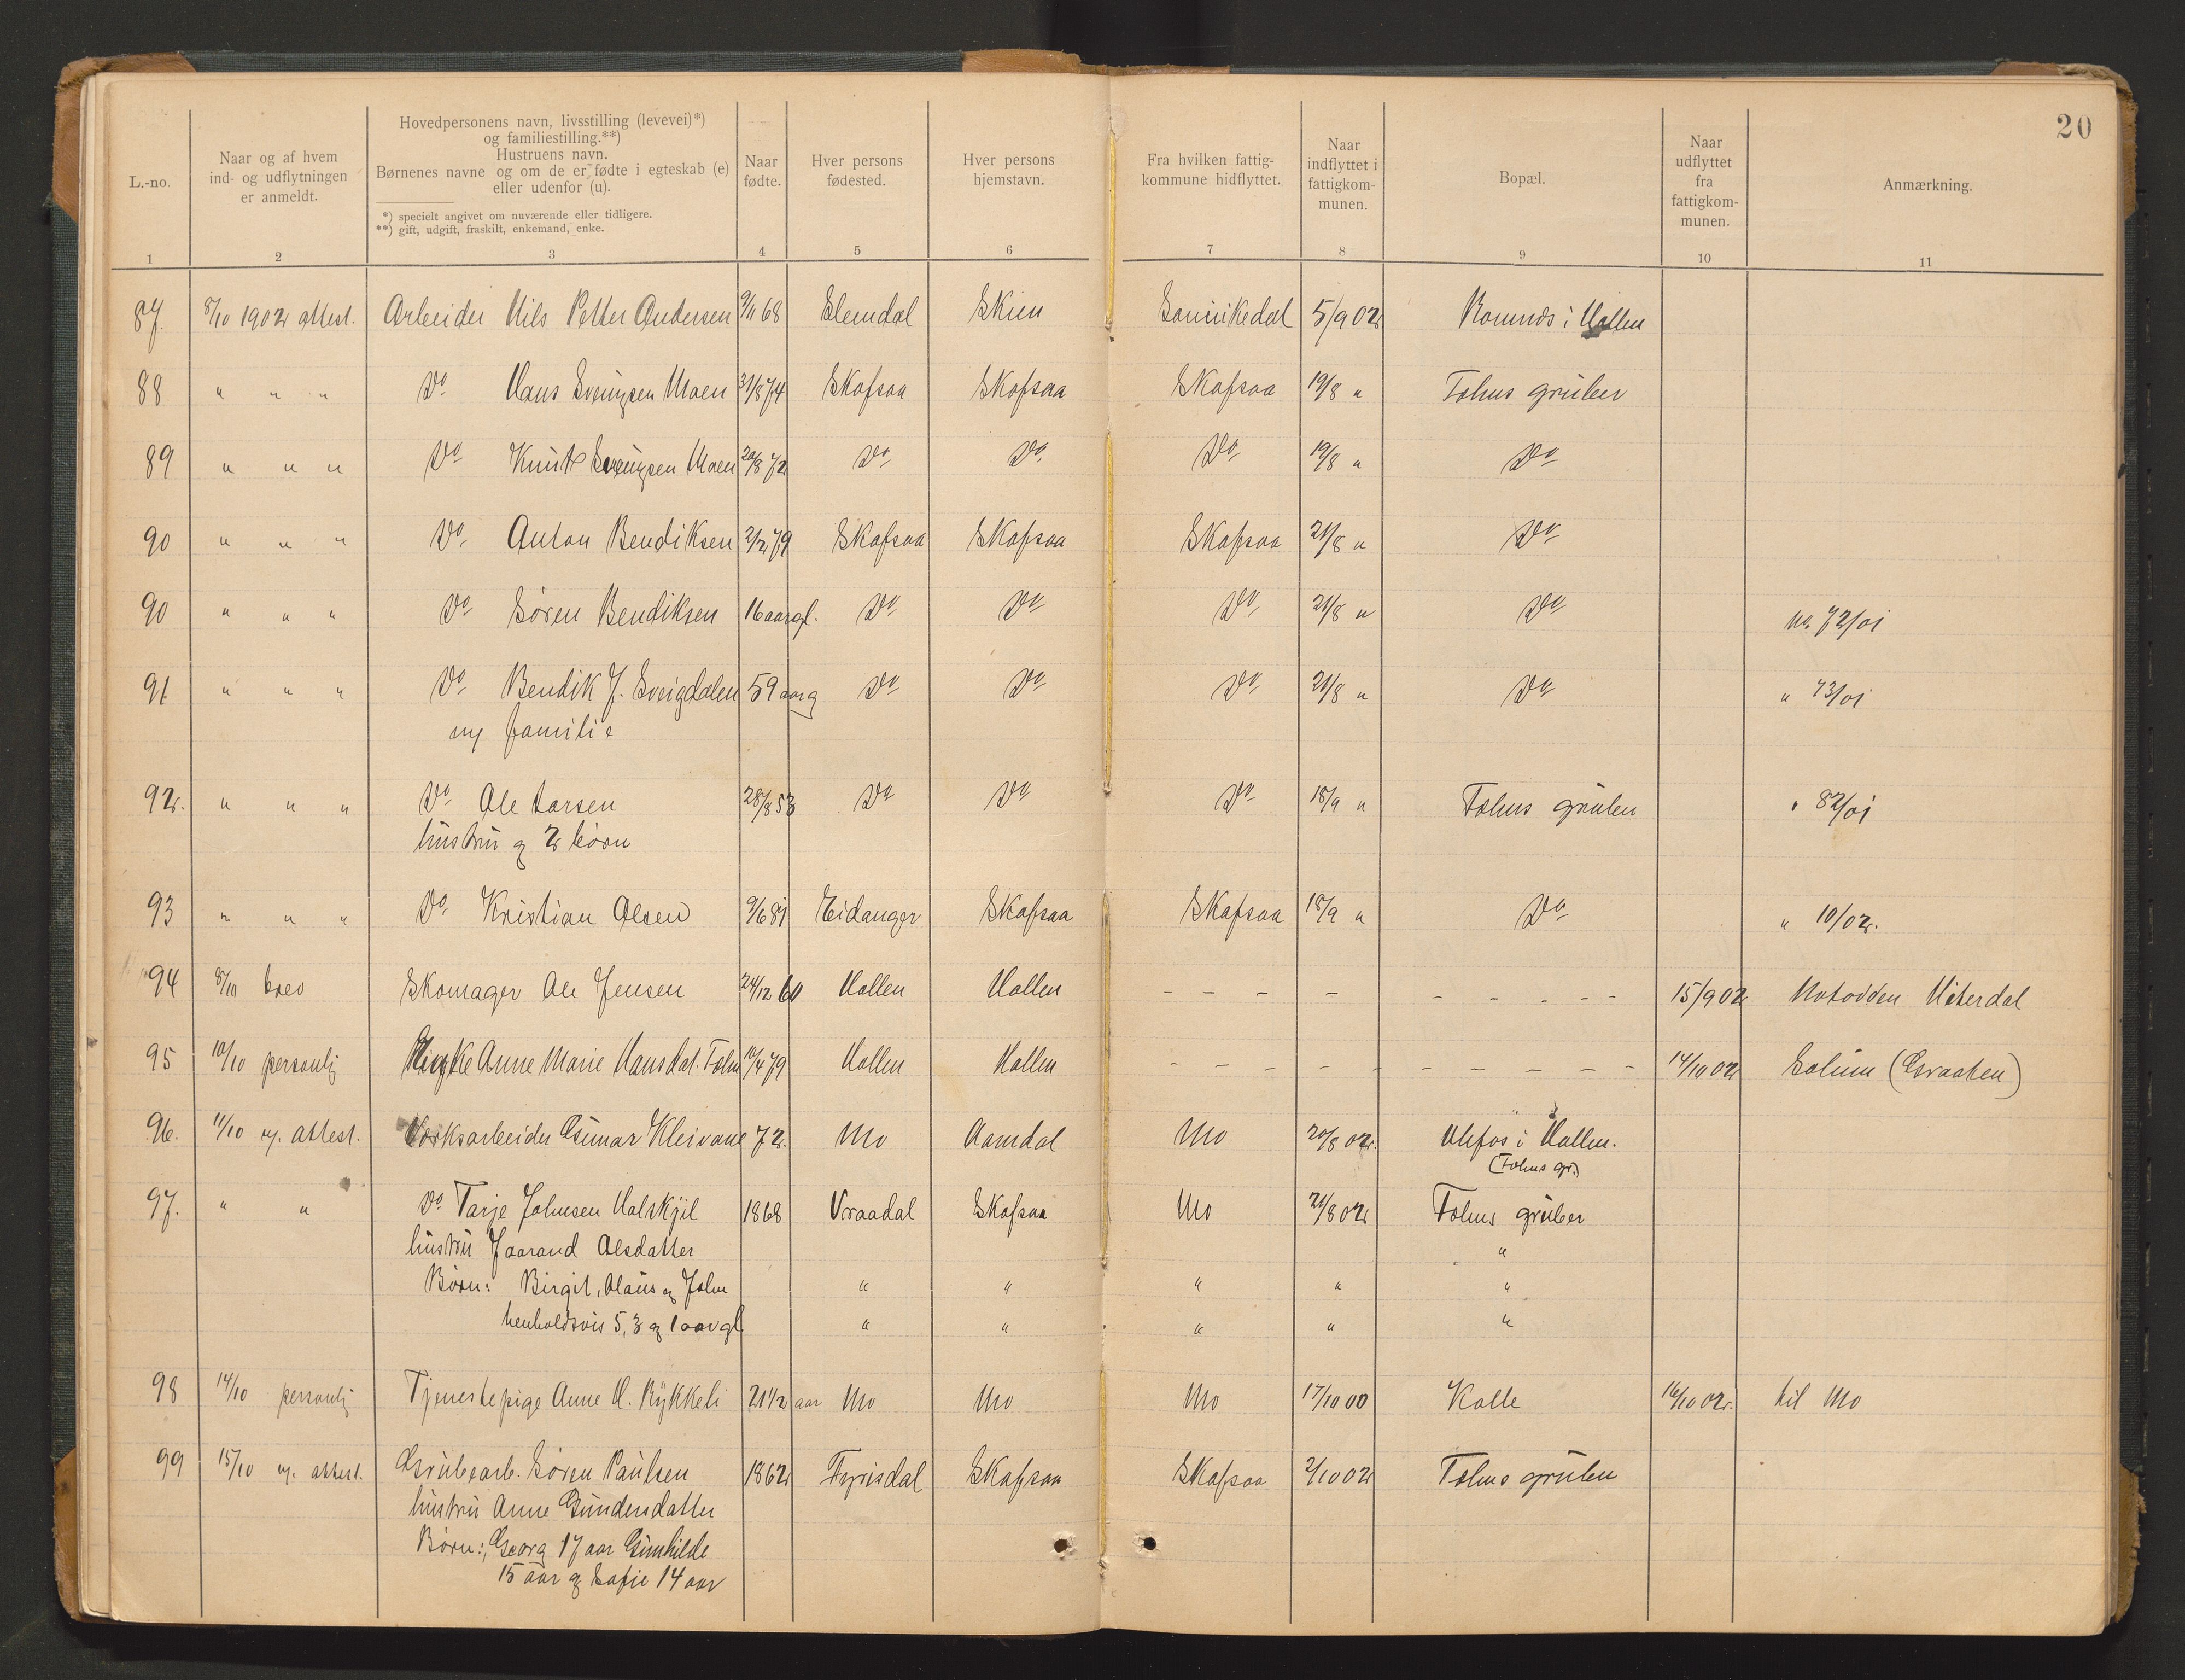 20
L.-no.
Naar og af hvem
ind- og udflytningen
er anmeldt.
Hovedpersonens navn, livsstilling (levevei)*)
og familiestilling.**)
Hustruens navn.
Børnenes navne og om de er fødte i egteskab (e)
eller udenfor (u).
*) specielt angivet om nuværende eller tidligere.
**) gift, udgift, fraskilt, enkemand, enke.
Naar
fødte.
Hver persons
fødested.
Hver persons
hjemstavn.
Fra hvilken fattig-
kommune hidflyttet.
Naar
indflyttet i
fattigkom-
munen.
Bopæl.
Naar
udflyttet
fra
fattigkom-
munen.
Anmærkning.
1 2 3 4 5 6 7 8 9 10 11
87 8/10 1902 attest. Arbeider Nils Petter Andersen 9/11 68 Slemdal Skien Sannikedal 5/9 02 Romnæs i Hollen
88 " " " Do Hans Sveingsen Moen 31/8 74 Skafsaa Skafsaa Skafsaa 19/8 " Fehns gruber
89 " " " Do Knut Sveingsen Moen 20/8 72 Do Do Do 19/8 " Do
90 " " " Do Anton Bendiksen 2/2 79 Skafsaa Skafsaa Skafsaa 21/8 " Do
90 " " " Do Søren Bendiksen 16 aar gl. Do Do Do 21/8 " Do no. 72/01
91 " " " Do Bendik J. Sveigdalen 59 aar g Do Do Do 21/8 " Do " 73/01
m/ familie
92. " " " Do Ole Larsen 28/8 53 Do Do Do 18/9 " Fehns gruber " 82/01
hustru og 2 børn
93 " " " Do Kristian Olsen 9/6 81 Eidanger Skafsaa Skafsaa 18/9 " Do " 10/02.
94 8/10 brev Skomager Ole Jensen 24/12 60 Hollen Hollen - - - - - - - - - 15/9 02 Notodden Hiterdal
95 10/10 personlig Pige Anne Marie Hansdat. Fehn 10/4 79 Hollen Hollen - - - - - - - - - - 14/10 02 Solum (Graaten)
96. 11/10 m/. attest. Værksarbeider Gunnar Kleivane 72. Mo Aamdal Mo 20/8 02. Ulefos i Hollen.
(Fehns gr.)
97. " " Do Tarje Johnsen Halskjil 1868 Vraadal Skafsaa Mo 21/8 02 Fehns gruber
hustru Jaarand Olsdatter "
Børn: Birgit, Olaus og John " " " " "
henholdsvis 5, 3 og 1 aar gl " " " " "
98 14/10 personlig Tjenestepige Anne O. Rykkeli 21 1/2 aar Mo Mo Mo 17/10 00 Kolle 16/10 02. til Mo
99 15/10 m/. attest. Grubearb. Søren Paulsen 1862 Fyrisdal Skafsaa Skafsaa 2/10 02 Fehns gruber
hustru Anne Gundersdatter
Børn: Georg 17 aar Gunhilde
15 aar og Sofie 14 aar